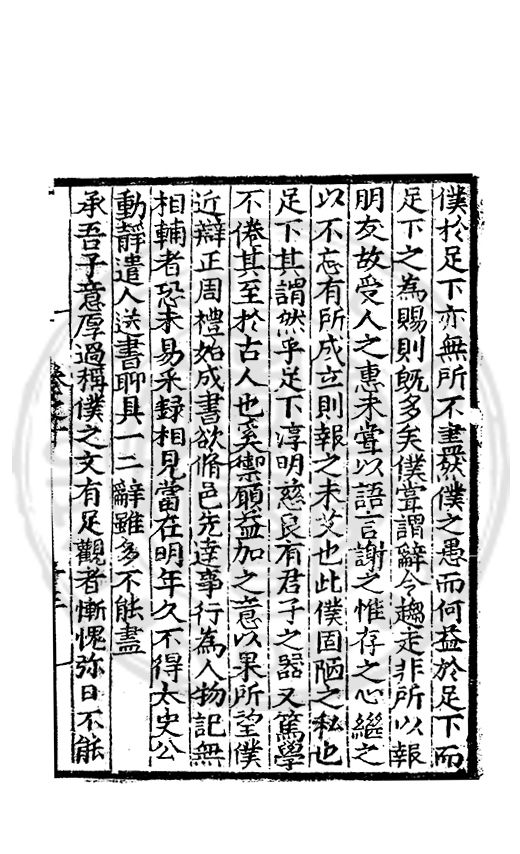 僕於足下亦無所不盡然僕之愚而何益於足下而
足下之為賜則既多矣僕嘗謂辭令趨走非所以報
朋友故受人之惠未嘗以語言謝之惟存之心繼之
以不忘有所成立則報之未艾也此僕固陋之私也
足下其謂然乎足下淳明慈良有君子之器又篤學
不倦其至於古人也奚禦願益加之意以果所望僕
近辯正周禮始成書欲脩邑先達事行為人物記無
相輔者恐未易釆録相見當在明年久不得太史公
動靜遣人送書聊具一二辭雖多不能盡
承吾子意厚過稱僕之文有足觀者慚愧弥日不能